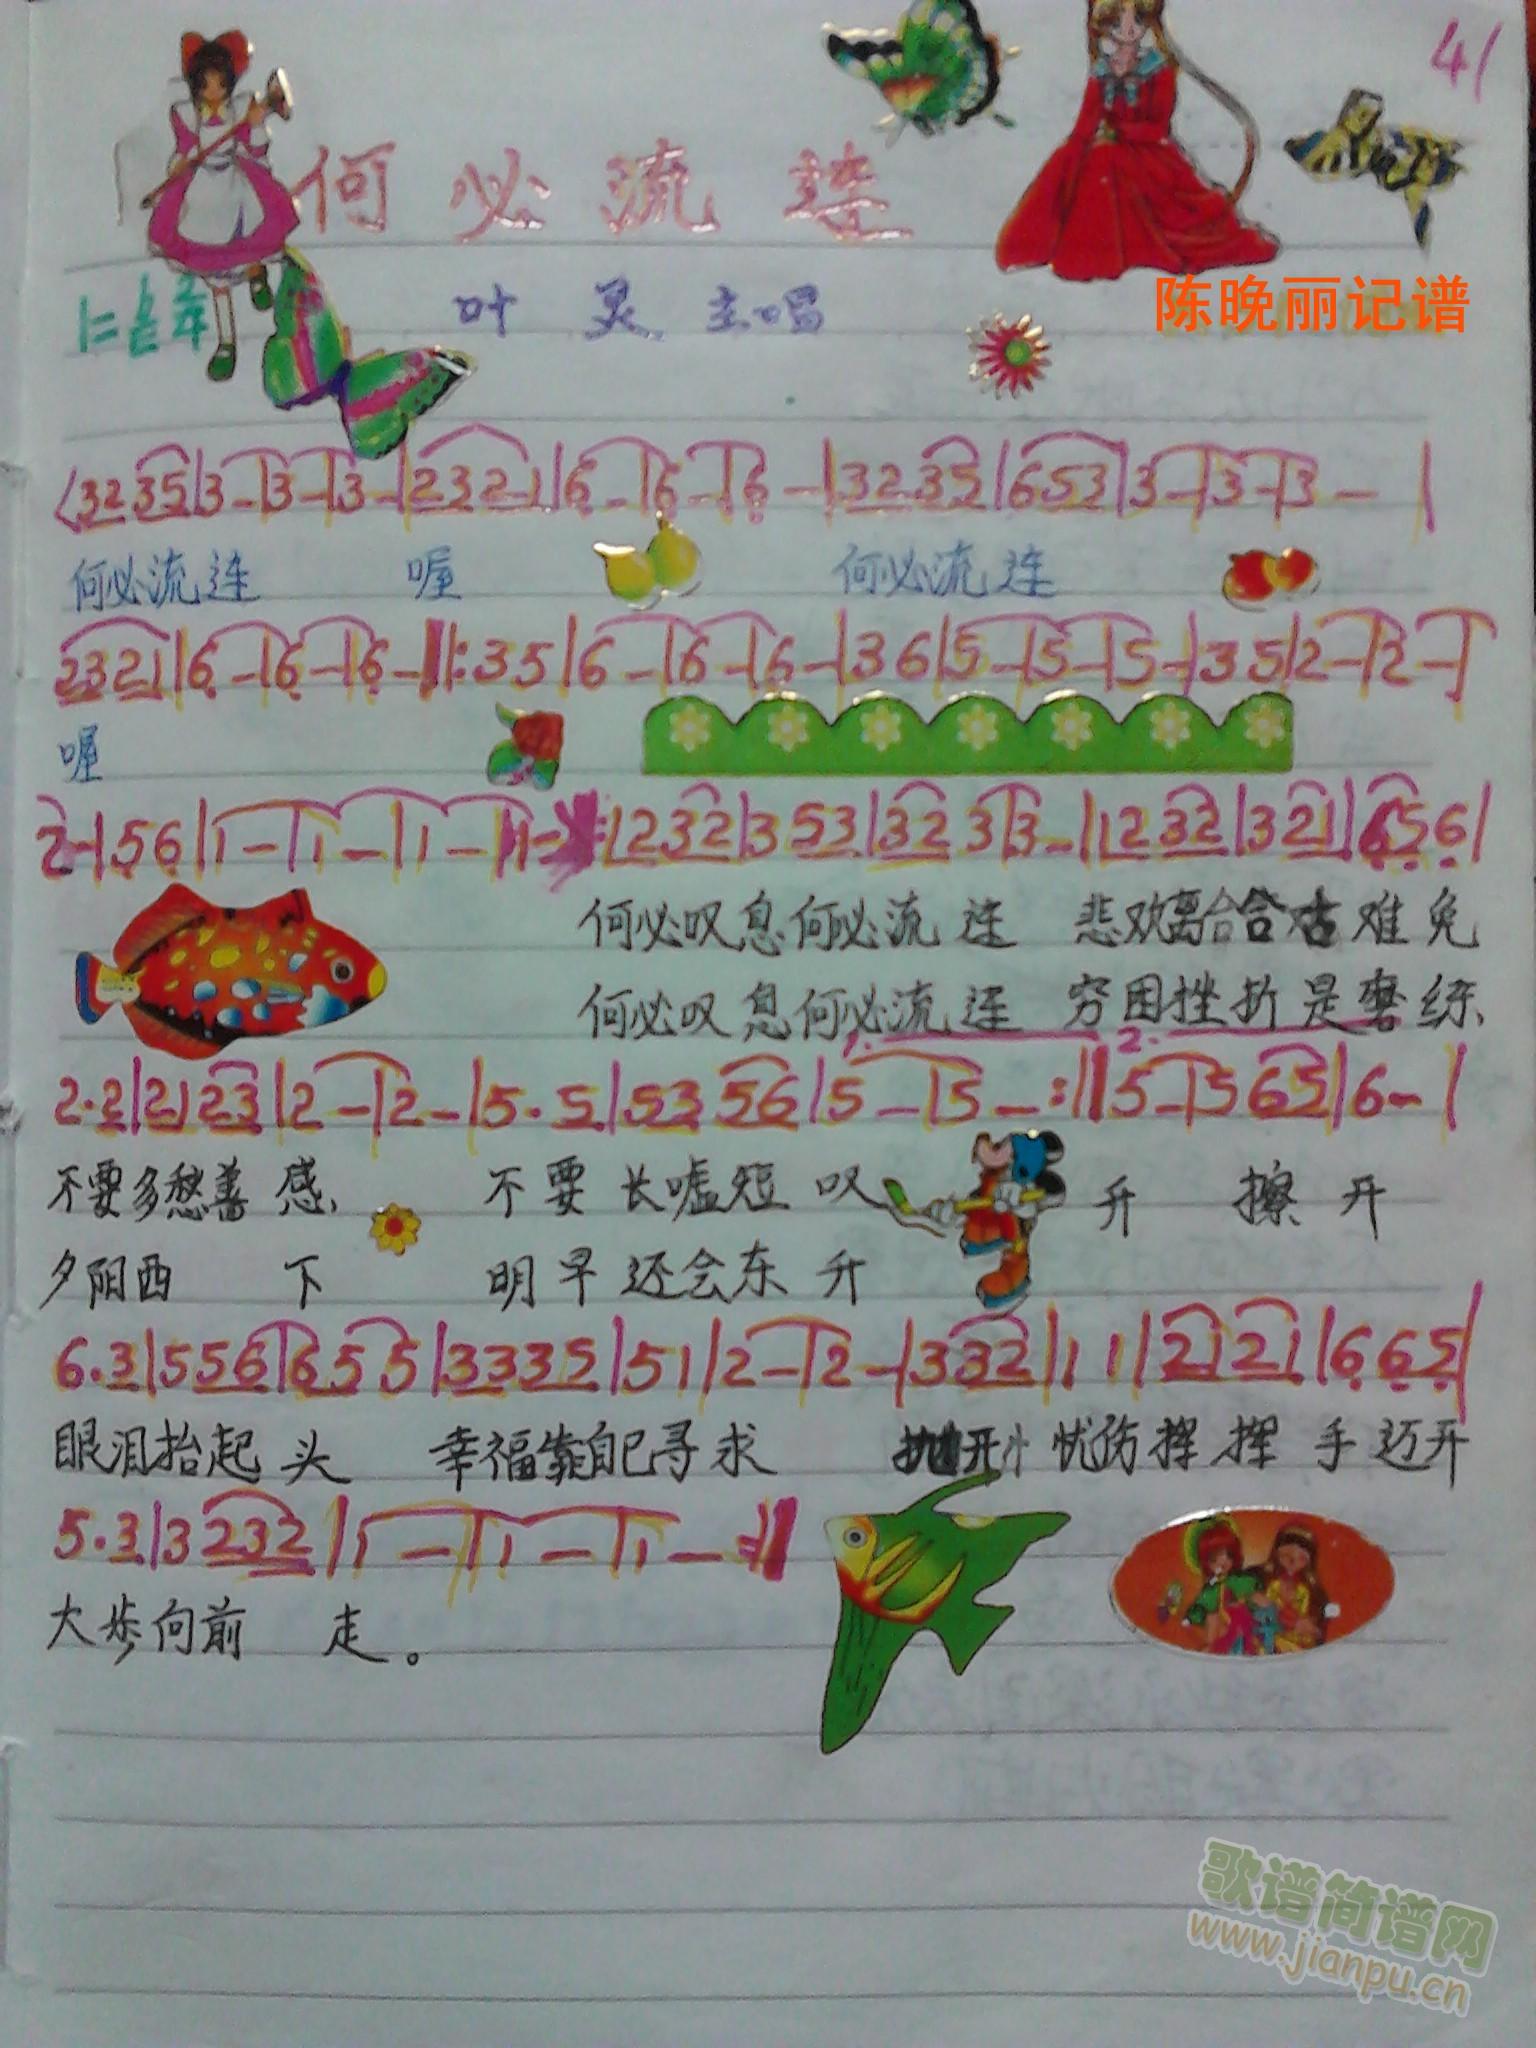 41
何必流连
叶灵主唱
陈晚丽记谱
3235|3-|3-|3-|2321|6-|6-|6-|3235|653|3-|3-|3-|
何必流连 喔 何必流连
2321|6-|6-|6-‖:35|6-|6-|6-|36|5-|5-|5-|35|2-|2-|
喔
2-|56|1-|1-|1-|1-:|1232|353|323|3-|1232|321|656|
何必叹息何必流连 悲欢离合 难免
何必叹息何必流连 穷困挫折是磨练
1. 2.
2·2|2123|2-|2-|5·5|5356|5-|5-:‖5-|565|6-|
不要多愁善感、 不要长嘘短叹 升 擦开
夕阳西下 明早还会东升
6·3|556|655|3335|51|2-|2-|332|11|2121|665|
眼泪抬起头 幸福靠自己寻求 抛开忧伤挥挥手迈开
5·3|3232|1-|1-|1-:‖
大步向前走。
歌谱简谱网
www.jianpu.cn